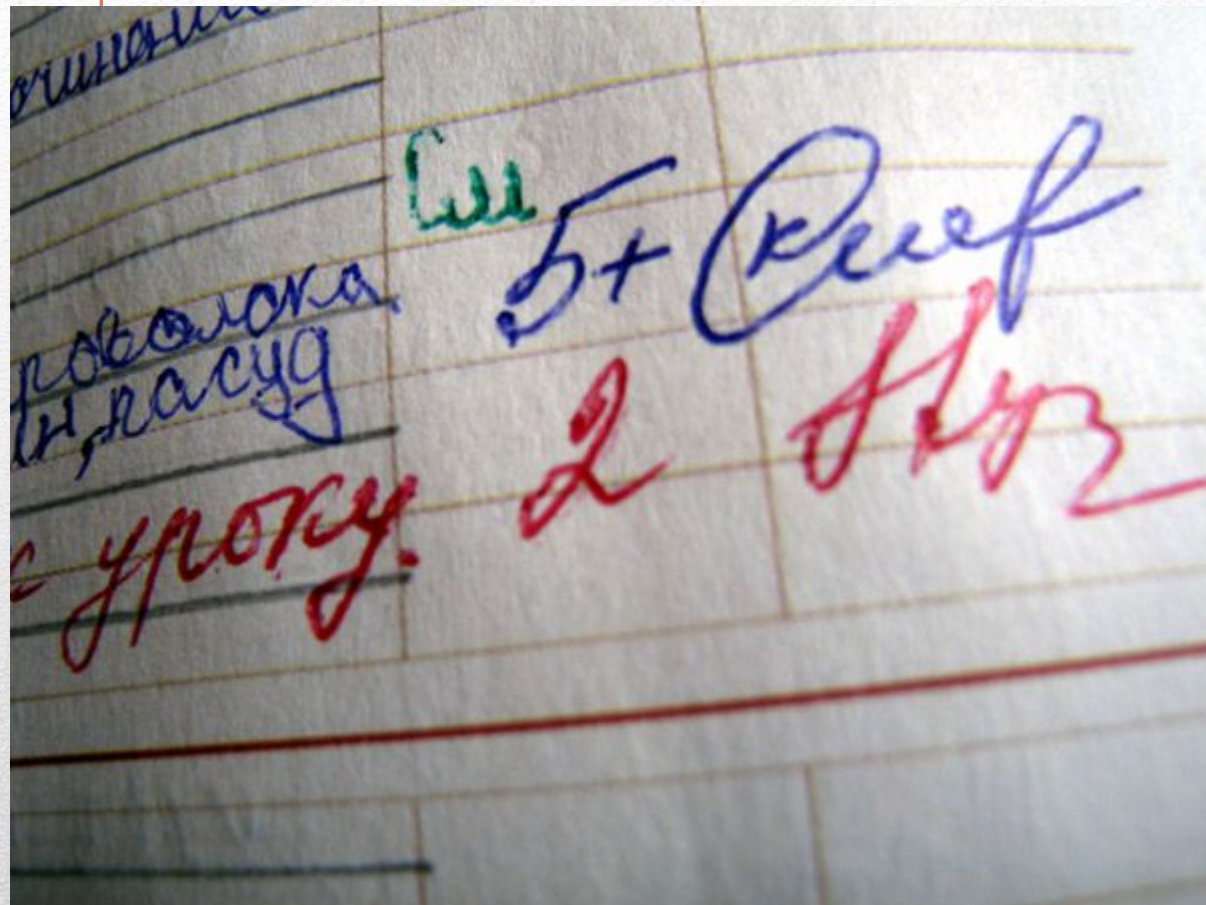 очинени
См
5+
роволока
н, расуд
к уроку. 2